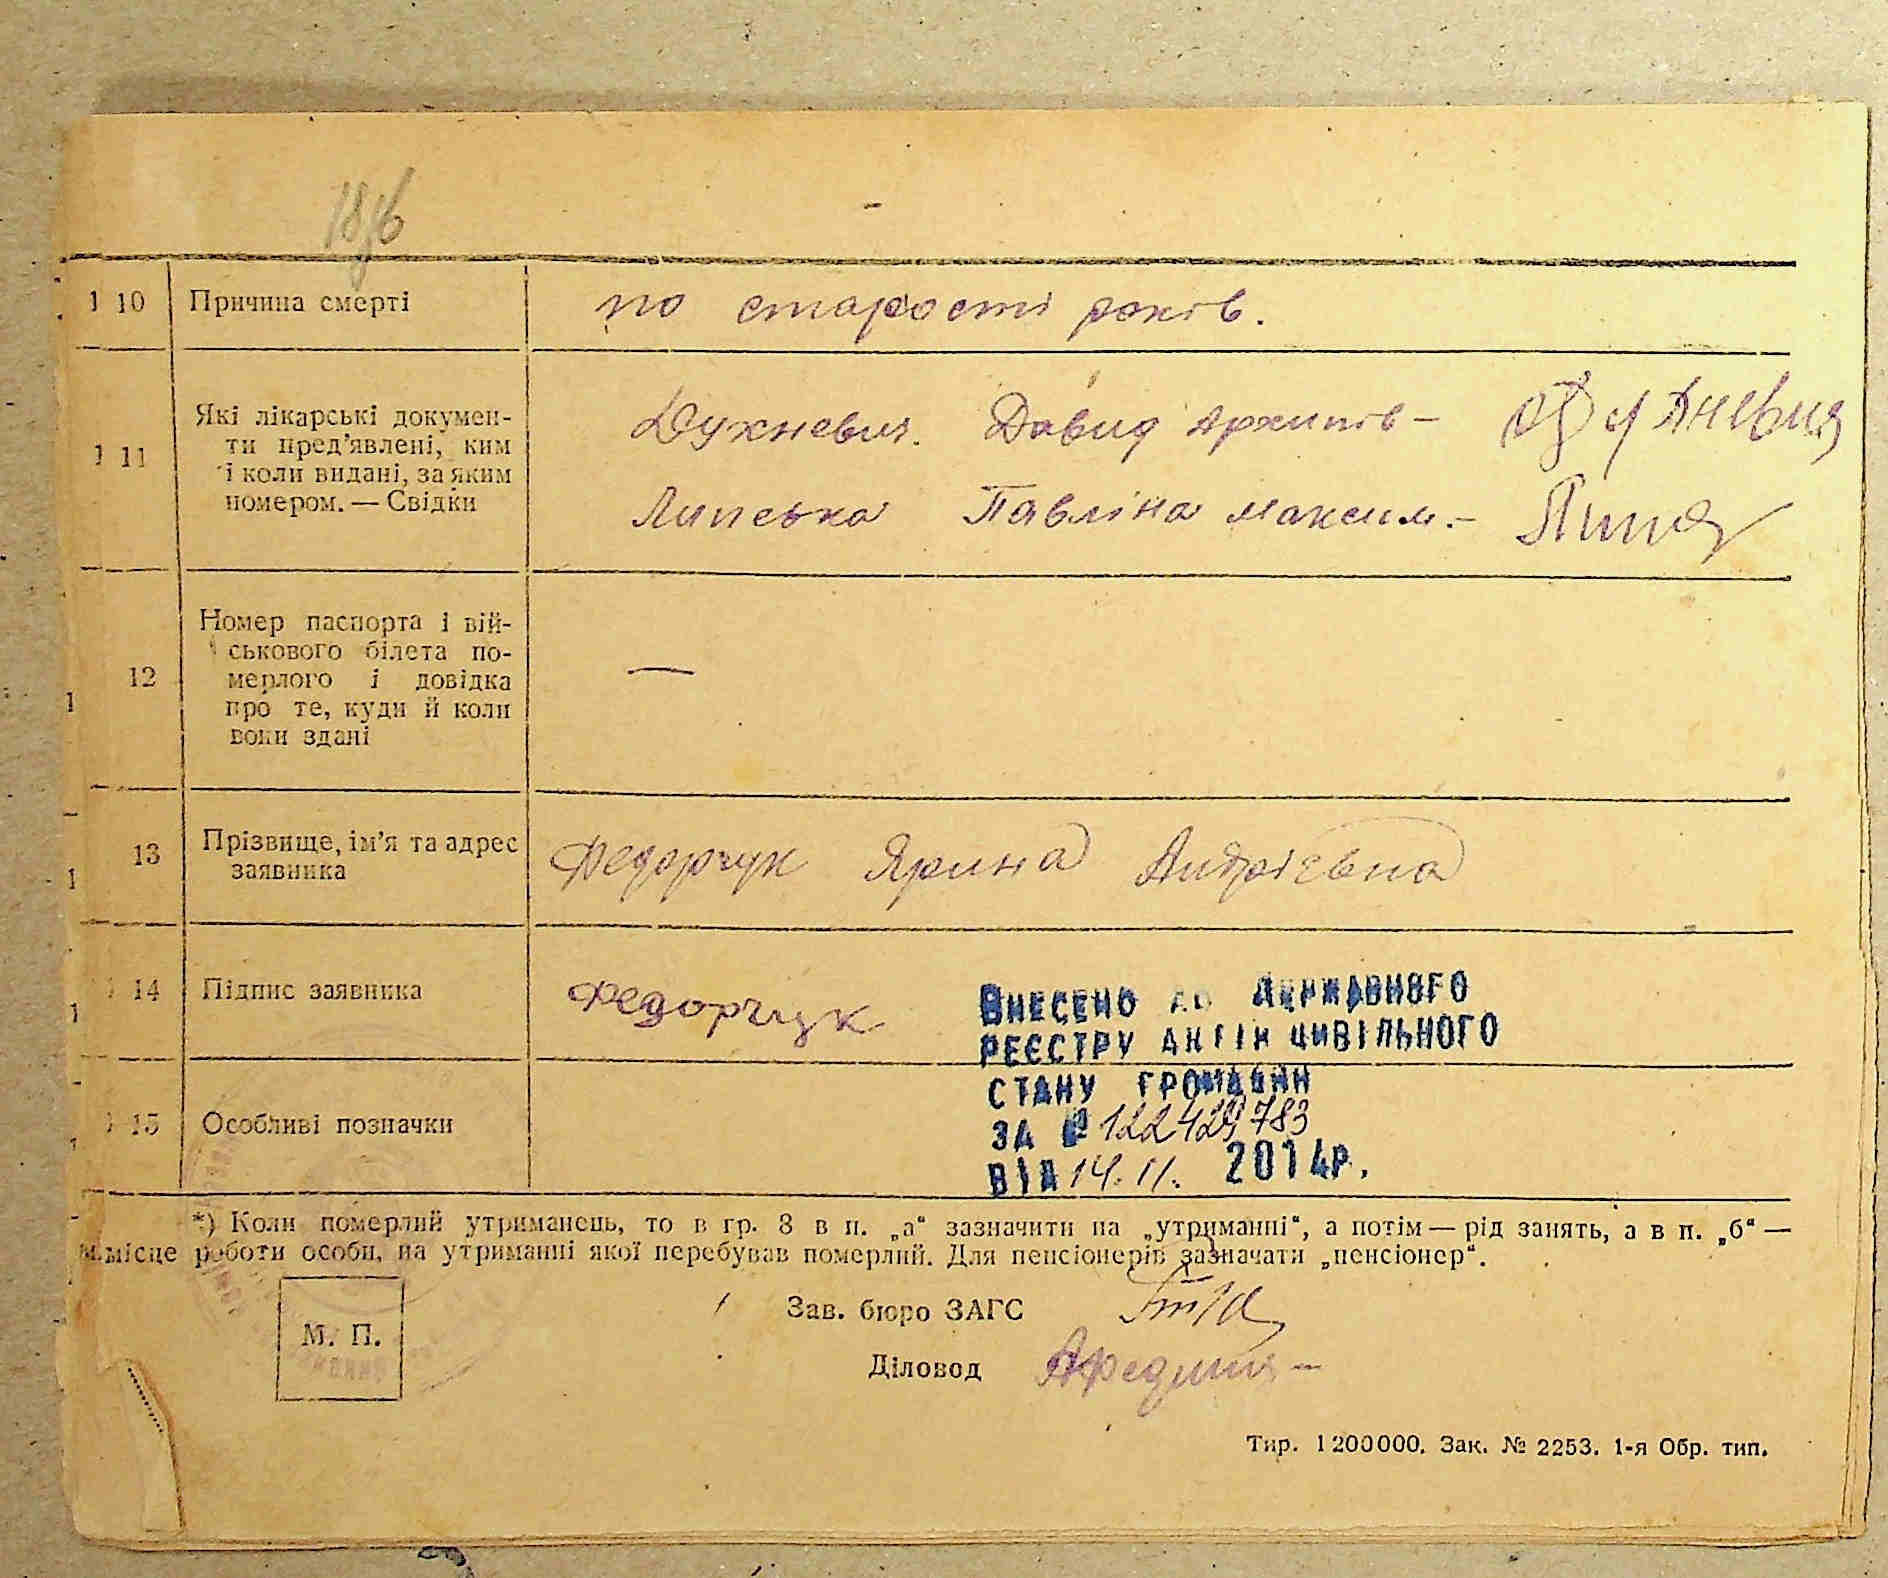 10 Причина смерті по старості років.
11 Які лікарські докумен-
ти пред'явлені, ким
і коли видані, за яким
номером. — Свідки
Духневич. Давид Архипів –
Липська Павліна Максим. –
12 Номер паспорта і вій-
ськового білета по-
мерлого і довідка
про те, куди й коли
вони здані
—
13 Прізвище, ім'я та адрес
заявника
Федорчук Ярина Андрієвна
14 Підпис заявника Федорчук
ВНЕСЕНО ДО ДЕРЖАВНОГО
РЕЄСТРУ АКТІВ ЦИВІЛЬНОГО
СТАНУ ГРОМАДЯН
ЗА № 122429783
ВІД 14.11. 2014р.
15 Особливі позначки
*) Коли померлий утриманець, то в гр. 8 в п. „а“ зазначити на „утриманні“, а потім — рід занять, а в п. „б“ —
місце роботи особи, на утриманні якої перебував померлий. Для пенсіонерів зазначати „пенсіонер“.
М. П.
Зав. бюро ЗАГС
Діловод
Тир. 1200000. Зак. № 2253. 1-я Обр. тип.